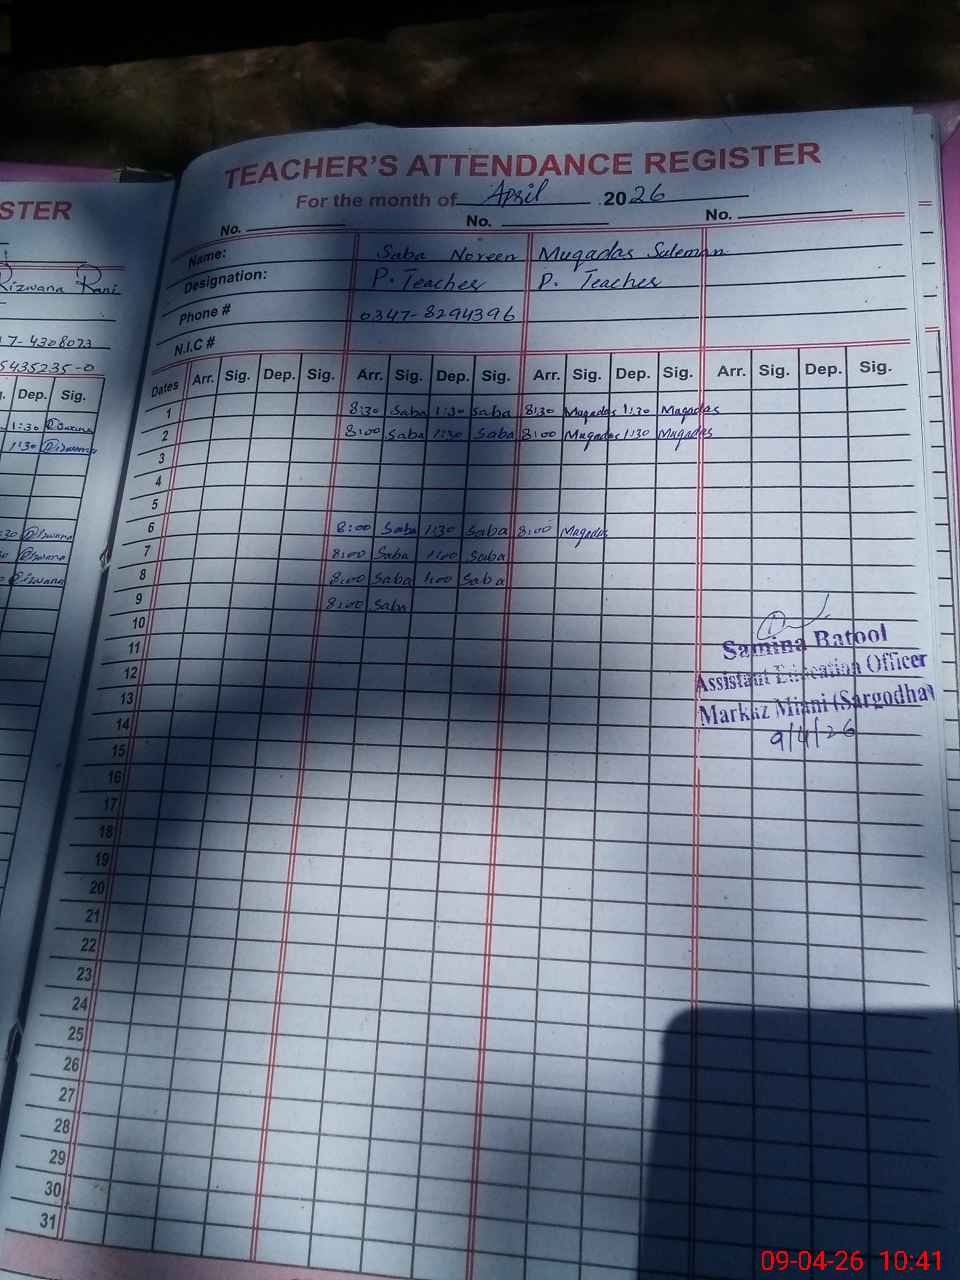 STER
Rizwana Rani
17-4308073
5435235-0
Dep. Sig.
1:30 Rizwana
1:30 Rizwana
:30 Rizwana
30 Rizwana
Rizwana
TEACHER'S ATTENDANCE REGISTER
For the month of April 2026
No. No. No.
Name: Saba Noreen Muqadas Suleman
Designation: P. Teacher P. Teacher
Phone # 0347-8294396
N.I.C #
Dates Arr. Sig. Dep. Sig. Arr. Sig. Dep. Sig. Arr. Sig. Dep. Sig. Arr. Sig. Dep. Sig.
1 8:30 Saba 1:30 Saba 8:30 Muqadas 1:30 Muqadas
2 8:00 Saba 1:30 Saba 8:00 Muqadas 1:30 Muqadas
3
4
5
6 8:00 Saba 1:30 Saba 8:00 Muqadas
7 8:00 Saba 1:00 Saba
8 8:00 Saba 1:00 Saba
9 8:00 Saba
10
11
12
13
14
15
16
17
18
19
20
21
22
23
24
25
26
27
28
29
30
31
Samina Batool
Assistant Education Officer
Markaz Miani (Sargodha)
9/4/26
09-04-26 10:41